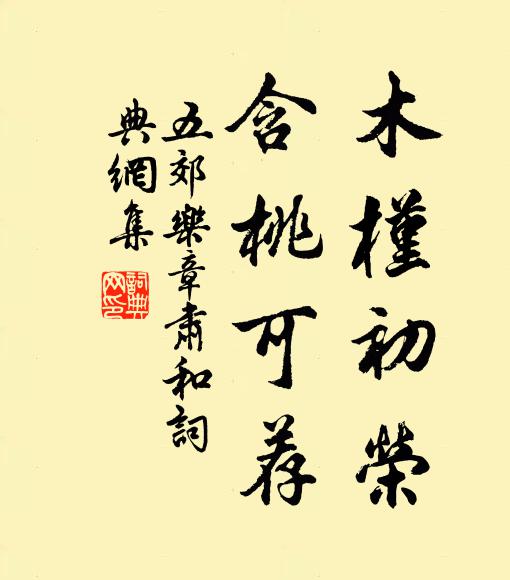 木槿初榮
含桃可荐
五郊樂章肅和詞
典網集
詞典
网印